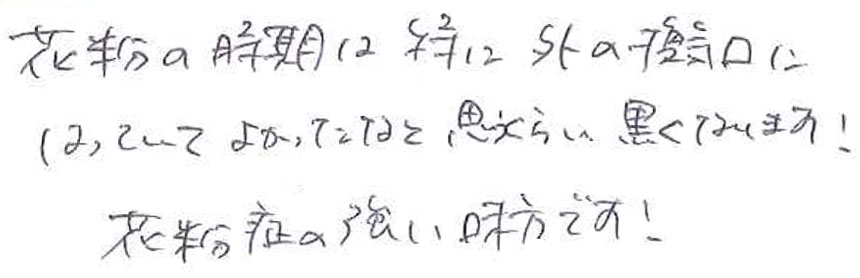 花粉の時期は特に外の換気口に
はっていてよかったなと思うくらい黒くなります!
花粉症の強い味方です!